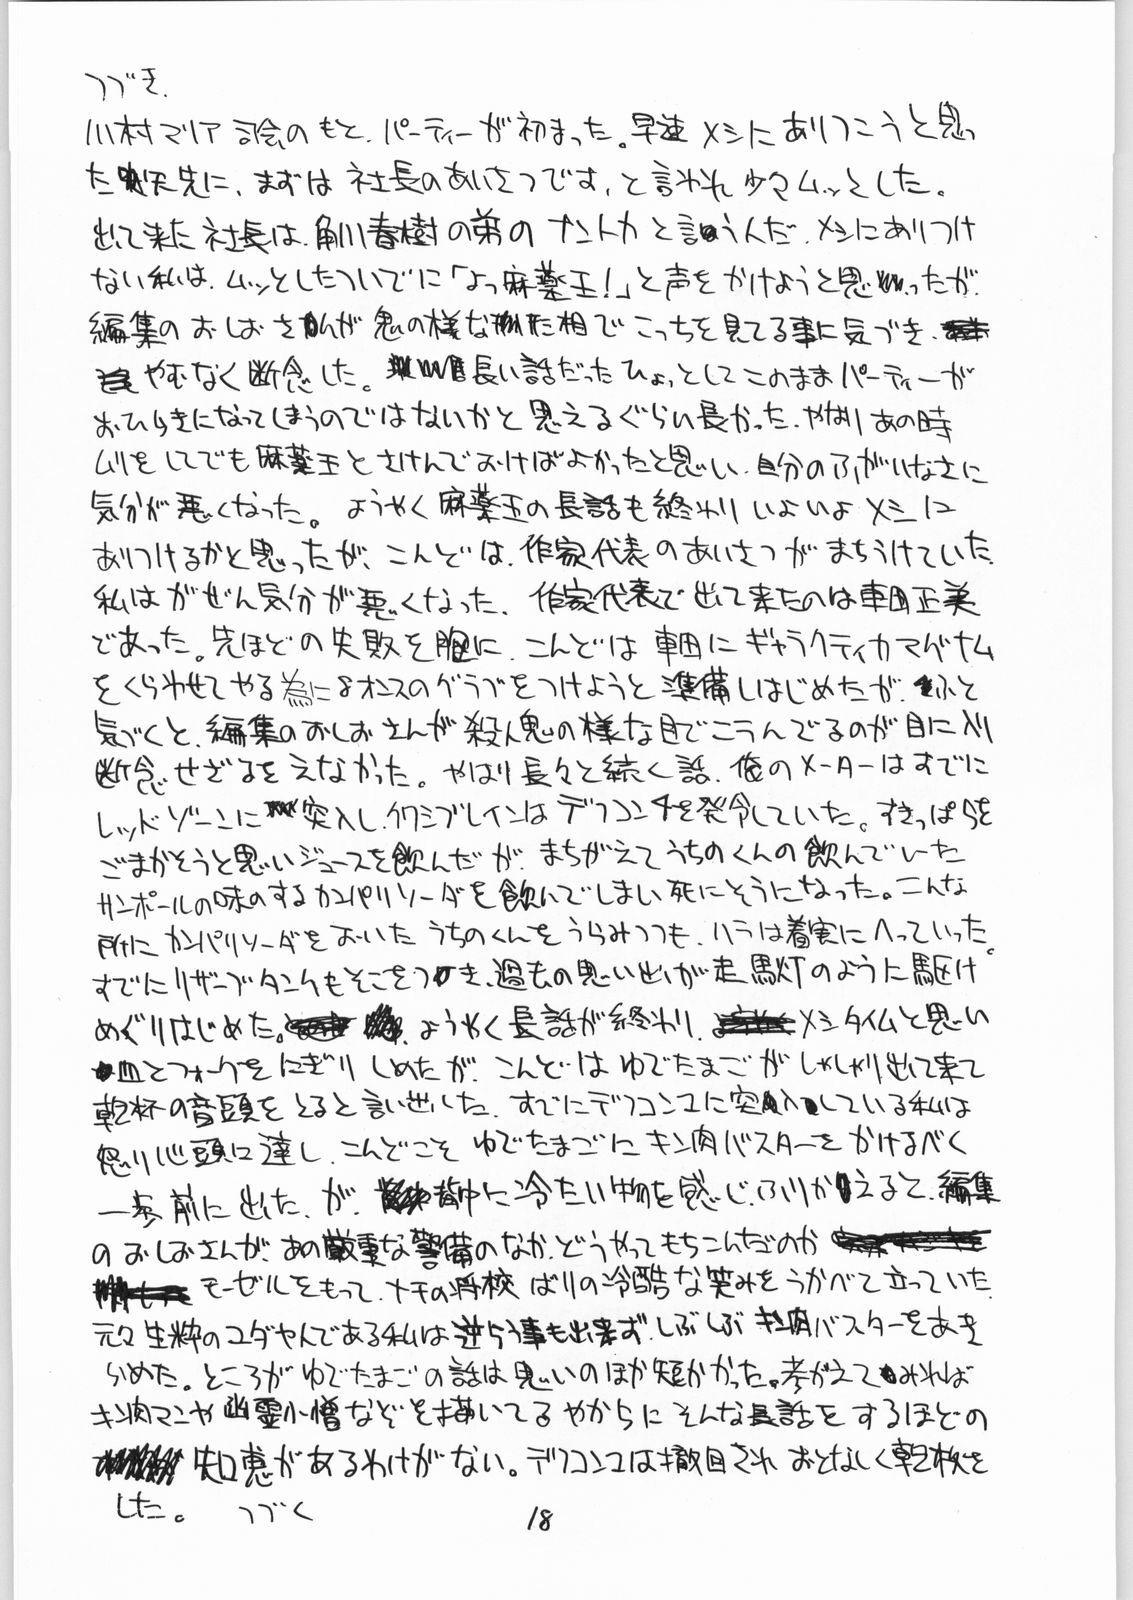 つづき.
川村マリア司会のもと、パーティーが初まった。早速メシにありつこうと思っ
た矢先に、まずは社長のあいさつです、と言われ少々ムッとした。
出て来た社長は、角川春樹の弟のナントカと言うんだ、メシにありつけ
ない私は、ムッとしたついでに「よっ麻薬王!」と声をかけようと思ったが、
編集のおしおさんが鬼の様な形相でこっちを見てる事に気づき、
やむなく断念した。長い話だったひょっとしてこのままパーティーが
おひらきになってしまうのではないかと思えるぐらい長かった、やはりあの時
ムリをしてでも麻薬王とさけんでおけばよかったと思い、自分のふがいなさに
気分が悪くなった。ようやく麻薬王の長話も終わりいよいよメシに
ありつけるかと思ったが、こんどは、作家代表のあいさつがまちうけていた、
私はがぜん気分が悪くなった、作家代表で出て来たのは車田正美
であった。先ほどの失敗を胸に、こんどは車田にギャラクティカマグナム
をくらわせてやる為に8オンスのグラブをつけようと準備しはじめたが、ふと
気づくと、編集のおしおさんが殺人鬼の様な目でこうんでるのが目に入り
断念せざるをえなかった。やはり長々と続く話、俺のメーターはすでに
レッドゾーンに突入し、クワシブレインはデフコン4を発令していた。すきっぱらを
ごまかそうと思いジュースを飲んだが、まちがえてうちのくんの飲んでいた
サンポールの味のするカンパリソーダを飲んでしまい死にそうになった。こんな
所にカンパリソーダをおいたうちのくんをうらみつつも、ハラは着実にへっていった。
すでにリザーブタンクもそこをつき、過去の思い出が走馬灯のように駆け
めぐりはじめた。ようやく長話が終わり、メシタイムと思い
皿とフォークをにぎりしめたが、こんどはゆでたまごがしゃしゃり出て来て
乾杯の音頭をとると言い出した、すでにデフコン2に突入している私は
怒り心頭に達し、こんどこそゆでたまごにキン肉バスターをかけるべく
一歩前に出た、が、背中に冷たい物を感じ、ふりかえると、編集
のおしおさんが、あの厳重な警備のなか、どうやってもちこんだのか
モーゼルをもって、ナチの将校ばりの冷酷な笑みをうかべて立っていた、
元々生粋のユダヤ人である私は逆らう事も出来ず、しぶしぶキン肉バスターをあき
らめた。ところがゆでたまごの話は思いのほか短かかった。考がえてみれば
キン肉マンや幽霊小僧などを描いてるやからにそんな長話をするほどの
知恵があるわけがない。デフコン2は撤回されおとなしく乾杯を
した。 つづく
18